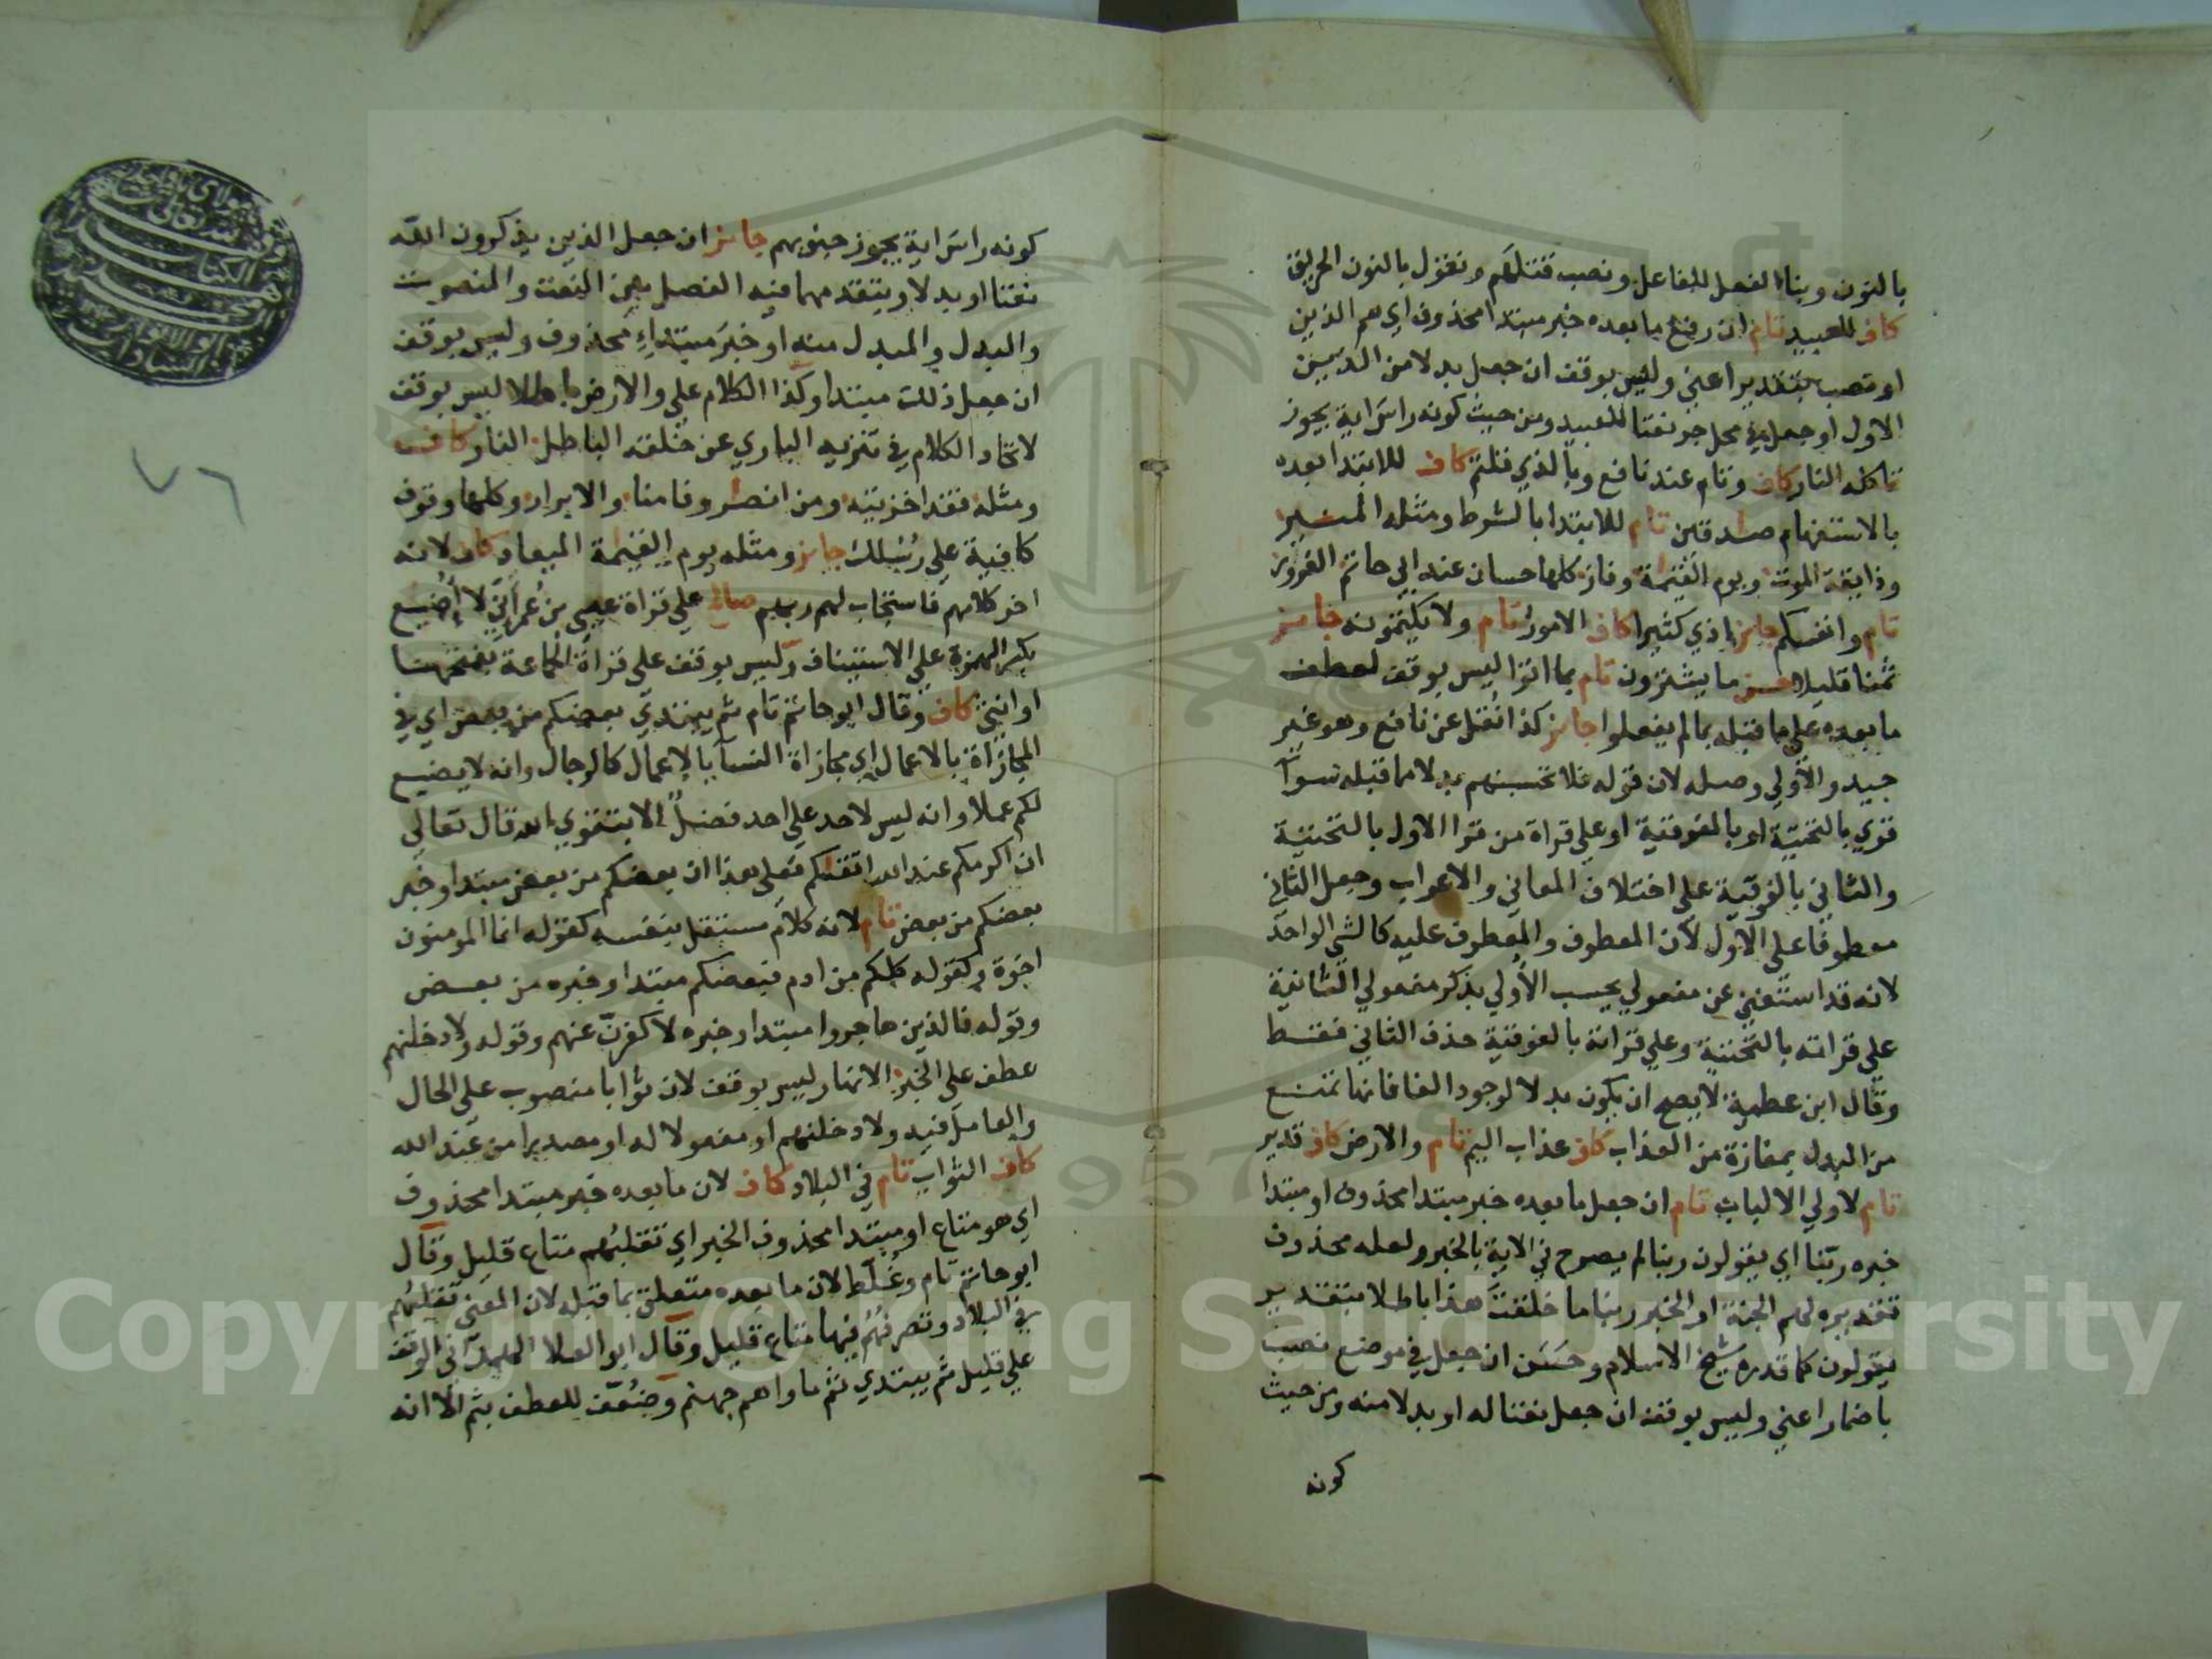 بالنون وبناء الفعل للفاعل ونصب قتلَهم ونقول بالنون الحريق
كاف للعبيد تام ان رفع ما بعده خبر مبتدا محذوف اي هم الذين
او نصب بتقدير اعني وليس بوقف ان جعل بدلا من الذين
الاول او جعل في محل جر نعتا للعبيد ومن حيث كونه راسَ اية يجوز
تاكله النار كاف وتام عند نافع وبالذي قلتم كاف للابتدا بعده
بالاستفهام صدقين تام للابتدا بالشرط ومثله المنير
وذايقة الموت ويوم القيمة وفاز كلها حسان عند ابي حاتم الغرور
تام وانفسكم جايز اذي كثيرا كاف الامور تام ولا تكتمونه جايز
ثمنا قليلا حسن ما يشترون تام بما اتوا ليس بوقف لعطف
ما بعده علي ما قبله بما لم يفعلوا جايز كذا نُقل عن نافع وهو غير
جيد والاولي وصله لان قوله فلا تحسبنهم بدلا مما قبله سوآ
قري بالتحتية او بالفوقية او علي قراة من قرا الاول بالتحتية
والثاني بالفوقية علي اختلاف المعاني والاعراب وجعل الثاني
معطوفا على الاول لان المعطوف والمعطوف عليه كالشي الواحد
لانه قد استغني عن مفعولي يحسب الأولي بذكر مفعولي الثانية
علي قراته بالتحتية وعلي قراته بالفوقية حذف الثاني فقط
وقال ابن عطية لا يصح ان يكون بدلا لوجود الفا فانها تمنع
من البدل بمفازة من العذاب كاف عذاب اليم تام والارض كاف قدير
تام لاولي الالباب تام ان جعل ما بعده خبر مبتدا محذوف او مبتدا
خبره ربّنا اي يقولون ربنا لم يصرح في الاية بالخبر ولعله محذوف
تقديره لهم الجنة او الخبر ربنا ما خلقتَ هذا باطلا بتقدير
يقولون كما قدره شيخ الاسلام وحسَن ان جعل في موضع نصب
باضمار اعني وليس بوقف ان جعل نعتا له او بدلا منه ومن حيث
كونه
كونه راسَ اية يجوز جنوبهم جايز ان جعل الذين يذكرون الله
نعتا او بدلا ويتقدمهما فيه الفصل بين النعت والمنعوت
والبدل والمبدل منه او خبرَ مبتداءٍ محذوف وليس بوقف
ان جعل ذلك مبتدا وكذا الكلام علي والارض باطلا ليس بوقف
لاتحاد الكلام في تنزيه الباري عن خلقه الباطل النار كاف
ومثله فقد اخزيته ومن انصار وفامنا والابرار وكلها وقوف
كافية علي رسلك جايز ومثله يوم القيمة الميعاد كاف لانه
اخر كلامهم فاستجاب لهم ربهم صالح علي قراة عيسى بن عُمر اِنّي لا اُضيع
بكسر الهمزة علي الاستيناف وليس بوقف علي قراة الجماعة بفتحها
او انثي كاف وقال ابو حاتم تام ثم يبتدي بعضكم من بعض اي في
المجازاة بالاعمال اي مجازاة النسآ بالاعمال كالرجال وانه لا يضيع
لكم عملا وانه ليس لاحد علي احد فضلٌ الا بتقوي الله قال تعالي
ان اكرمكم عند الله اتقيكم فعلى هذا ان بعضكم من بعض مبتدا وخبر
بعضكم من بعض تام لانه كلام مستقل بنفسه كقوله انما المومنون
اخوة وكقوله كلكم من ادم فبعضكم مبتدا وخبره من بعض
وقوله فالذين هاجروا مبتدا وخبره لاكفرنّ عنهم وقوله ولادخلنهم
عطف علي الخبر الانهار ليس بوقف لان ثوابا منصوب علي الحال
والعامل فيه ولادخلنهم او مفعولا له او مصدرا من عند الله
كاف الثواب تام في البلاد كاف لان ما بعده خبر مبتدا محذوف
اي هو متاع او مبتدا محذوف الخبر اي تقلبُهم متاع قليل وقال
ابو حاتم تام وغُلّط لان ما بعده متعلق بما قبله لان المعني تقلبُهم
في البلاد وتصرفُهُم فيها متاع قليل وقال ابو العلا الهمداني الوقف
علي قليل ثم يبتدي ثم ماواهم جهنم وضُعّف للعطف بثم الّا انه
٧٦
Copyright © King Saud University
1957